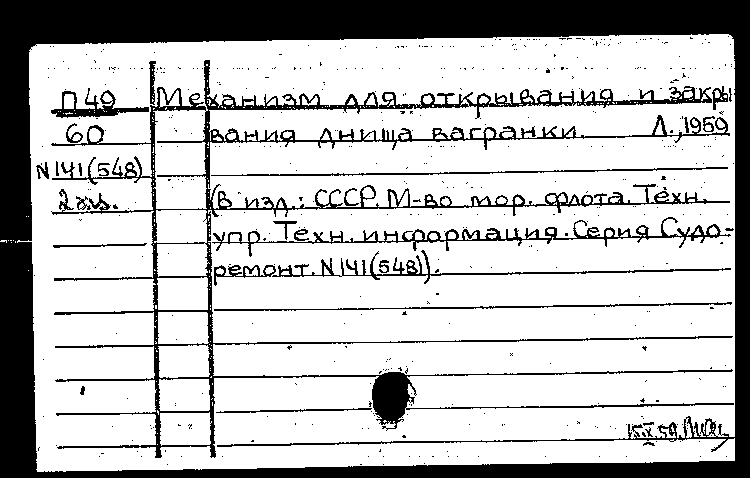 П49 Механизм для открывания и закры
60 вания днища вагранки. Л.,1959
N141(548)
2 экз. (В изд.: СССР. М-во мор. флота. Техн.
упр. Техн. информация. Серия Судо-
ремонт. N141(548)).
15.X.59.